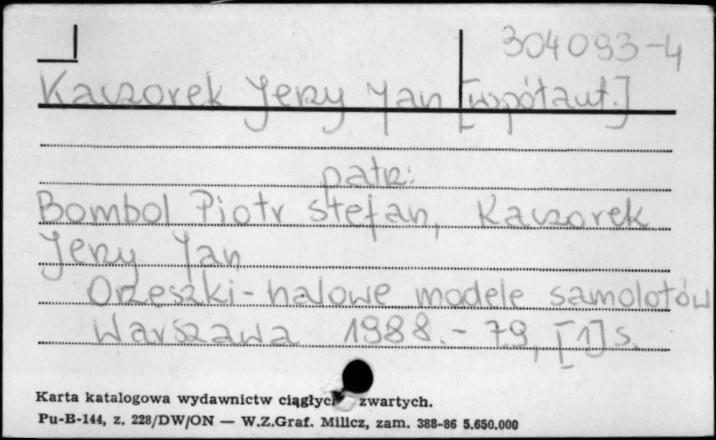 304093-4
Kaczorek Jerzy Jan [współaut.]
patrz:
Bombol Piotr Stefan, Kaczorek
Jerzy Jan
Orzeszki - halowe modele samolotów
Warszawa 1988. - 79, [1] s.
Karta katalogowa wydawnictw ciągłych zwartych.
Pu-B-144, z. 228/DW/ON — W.Z.Graf. Milicz, zam. 388-86 5.650.000